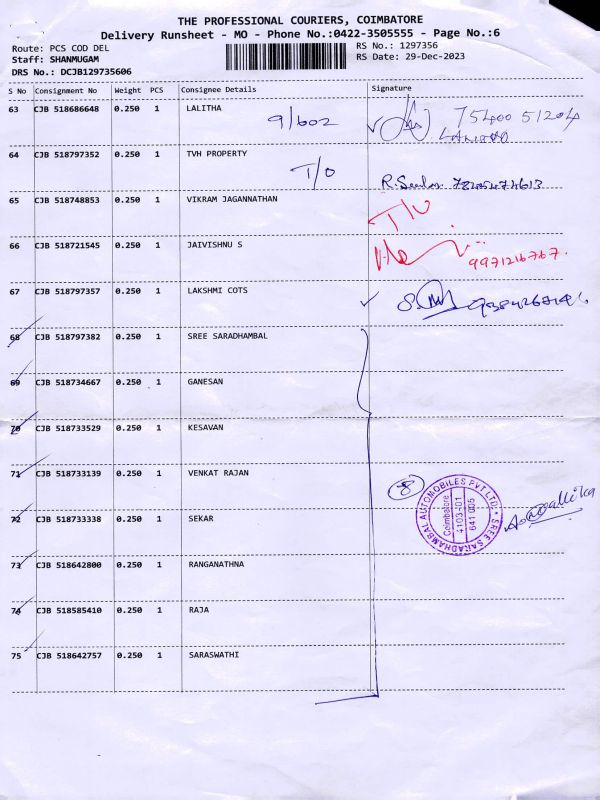 THE PROFESSIONAL COURIERS, COIMBATORE
Delivery Runsheet - MO - Phone No.:0422-3505555 - Page No.:6
Route: PCS COD DEL
Staff: SHANMUGAM
DRS No.: DCJB129735606
RS No.: 1297356
RS Date: 29-Dec-2023
S No Consignment No Weight PCS Consignee Details Signature
63 CJB 518686648 0.250 1 LALITHA 9/602 75400 51204
64 CJB 518797352 0.250 1 TVH PROPERTY T/O
65 CJB 518748853 0.250 1 VIKRAM JAGANNATHAN T/O
66 CJB 518721545 0.250 1 JAIVISHNU S 9971216767.
67 CJB 518797357 0.250 1 LAKSHMI COTS
68 CJB 518797382 0.250 1 SREE SARADHAMBAL
69 CJB 518734667 0.250 1 GANESAN
70 CJB 518733529 0.250 1 KESAVAN
71 CJB 518733139 0.250 1 VENKAT RAJAN
72 CJB 518733338 0.250 1 SEKAR
73 CJB 518642800 0.250 1 RANGANATHNA
74 CJB 518585410 0.250 1 RAJA
75 CJB 518642757 0.250 1 SARASWATHI
8
SREE SARADHAMBAL AUTOMOBILES PVT LTD.
Coimbatore
641 005